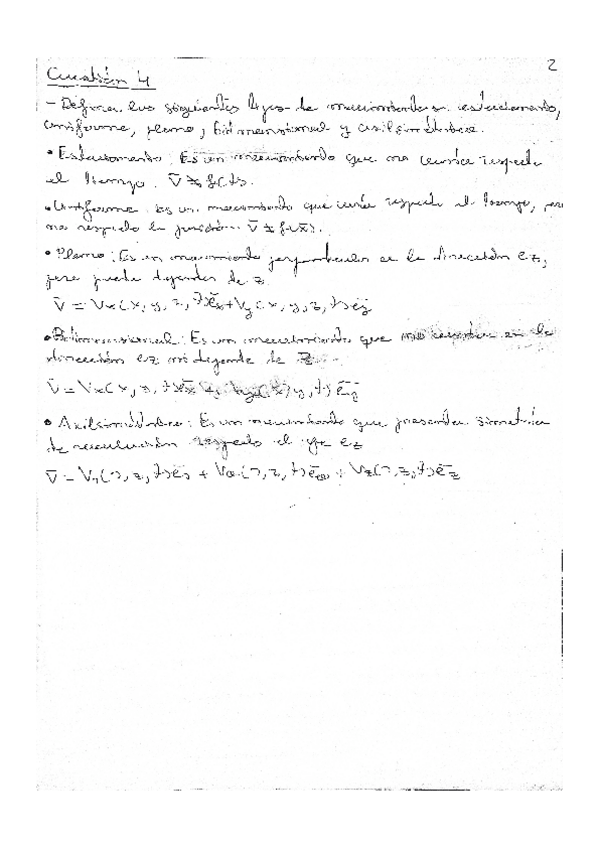 2
Cuestión 4
- Defina los siguientes tipos de movimientos: estacionario,
uniforme, plano, bidimensional y axilsimétrico.
• Estacionario: Es un movimiento que no varía respecto
el tiempo. v̄ ≠ f(t).
• Uniforme: Es un movimiento que varía respecto el tiempo, pero
no respecto la posición. v̄ ≠ f(x̄).
• Plano: Es un movimiento perpendicular a la dirección ez,
pero puede depender de z.
v̄ = Vx(x, y, z, t)ēx + Vy(x, y, z, t)ēy
• Bidimensional: Es un movimiento que en la
dirección ez ni depende de z.
v̄ = Vx(x, y, t)ēx + Vy(x, y, t)ēy
• Axilsimétrico: Es un movimiento que presenta simetría
de revolución respecto el eje ez
v̄ = Vr(r, z, t)ēr + Vθ(r, z, t)ēθ + Vz(r, z, t)ēz